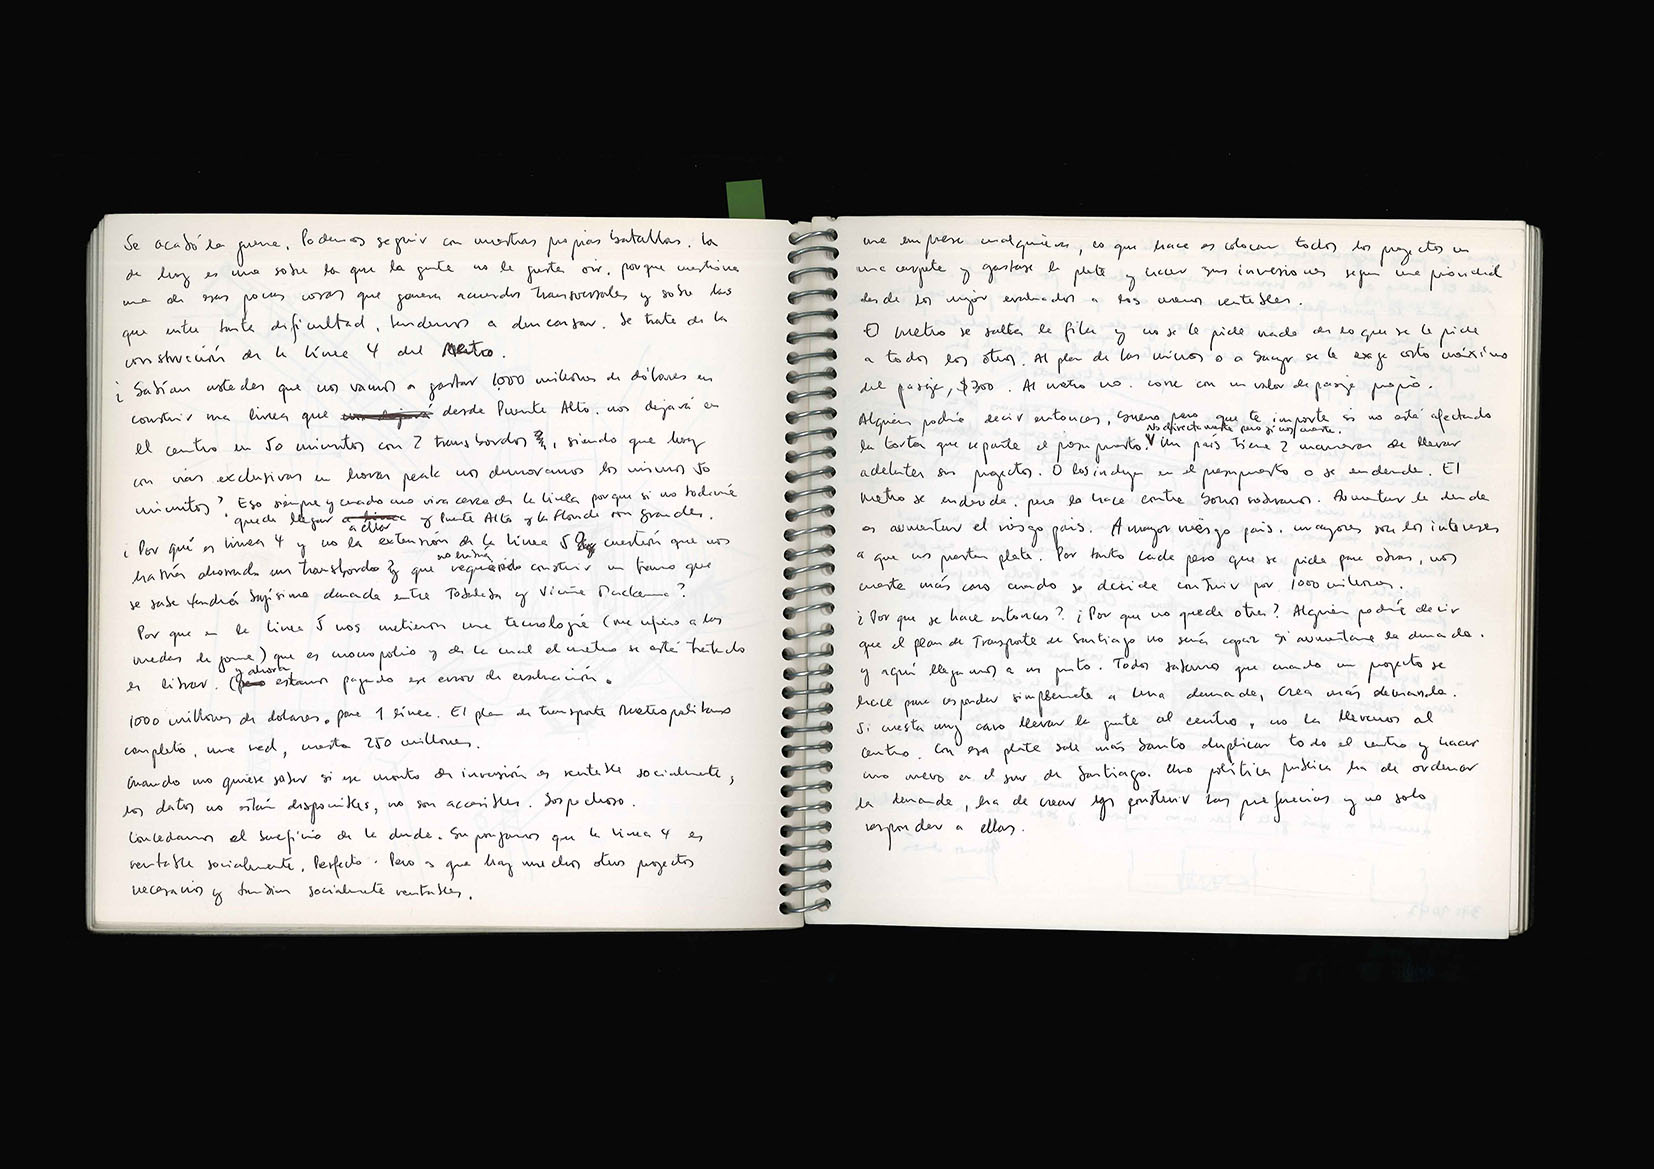 Se acabó la guerra. Podemos seguir con nuestras propias batallas. La
de hoy es una sobre la que la gente no le gusta oir, porque cuestiona
una de esas pocas cosas que genera acuerdos transversales y sobre las
que entre tanta dificultad, tendemos a descansar. Se trata de la
construcción de la línea 4 del Metro.
¿Sabían ustedes que nos vamos a gastar 1000 millones de dólares en
construir una línea que desde Puente Alto. nos dejará en
el centro en 50 minutos con 2 transbordos, siendo que hoy
con vías exclusivas en horas peak nos demoramos los mismos 50
minutos? Eso siempre y cuando uno viva cerca de la línea porque si no todavía
queda llegar a ella y Puente Alto y la Florida son grandes.
¿Por qué es línea 4 y no la extensión de la línea 5? cuestión que nos
habría ahorrado un transbordo y que no habría requerido construir un tramo que
se sabe tendrá bajísima demanda entre Tobalaba y Vicuña Mackenna?
Por que en la línea 5 nos metieron una tecnología (me refiero a las
ruedas de goma) que es monopolio y de la cual el metro se está tratando
es librar. (y ahora estamos pagando ese error de evaluación.
1000 millones de dolares. para 1 línea. El plan de transporte Metropolitano
completo, una red, cuesta 250 millones.
Cuando uno quiere saber si ese monto de inversión es rentable socialmente,
los datos no están disponibles, no son accesibles. Sospechoso.
Concedamos el beneficio de la duda. Supongamos que la línea 4 es
rentable socialmente. Perfecto. Pero es que hay muchos otros proyectos
necesarios y también socialmente rentables.
una empresa cualquiera, lo que hace es colocar todos los proyectos en
una carpeta y gastarse la plata y hacer sus inversiones segun una prioridad
desde los mejor evaluados a los menos rentables.
El Metro se salta la fila y no se le pide nada de lo que se le pide
a todos los otros. Al plan de las micros o a Transp se le exige costo máximo
del pasaje, $300. Al metro no. corre con un valor de pasaje propio.
Alguien podría decir entonces, bueno pero que te importa si no está afectando
la torta que reparte el presupuesto. No directamente pero si indirectamente. Un país tiene 2 maneras de llevar
adelante sus proyectos. O los incluye en el presupuesto o se endeuda. El
Metro se endeuda. pero lo hace contra bonos soberanos. Aumentar la deuda
es aumentar el riesgo país. A mayor riesgo país. mayores son los intereses
a que nos prestan plata. Por tanto cada peso que se pide para obras, nos
cuesta más caro cuando se decide construir por 1000 millones.
¿Por que se hace entonces? ¿Por que no queda otra? Alguien podría decir
que el plan de Transporte de Santiago no será capaz si aumentara la demanda.
y aquí llegamos a un punto. Todos sabemos que cuando un proyecto se
hace para responder simplemente a una demanda, crea más demanda.
Si cuesta muy caro llevar la gente al centro, no la llevemos al
centro. Con esa plata sale más barato duplicar todo el centro y hacer
uno nuevo en el sur de Santiago. Una política pública ha de ordenar
la demanda, ha de crear y construir las preferencias y no solo
responder a ellas.